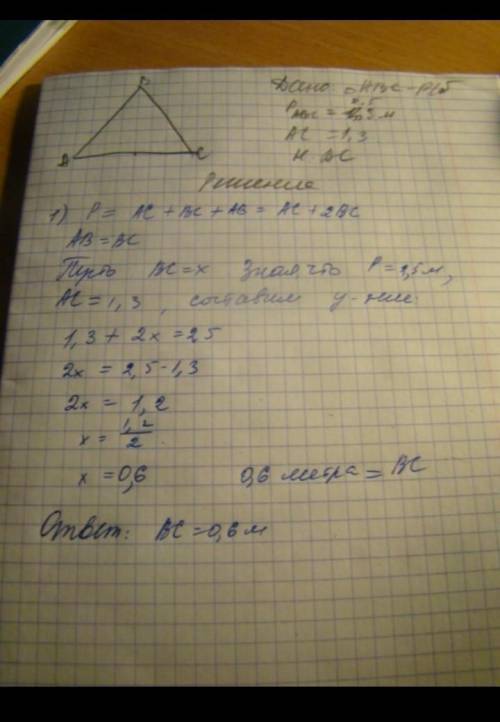 B
A C
Дано: △ABC – р/б
P ABC = 2,5 м
AC = 1,3
Н: BC
Решение
1) P = AC + BC + AB = AC + 2BC
AB = BC
Пусть BC = x Зная, что P = 2,5 м,
AC = 1,3, составим у-ние:
1,3 + 2x = 2,5
2x = 2,5 - 1,3
2x = 1,2
x = 1,2/2
x = 0,6 0,6 метра = BC
Ответ: BC = 0,6 м